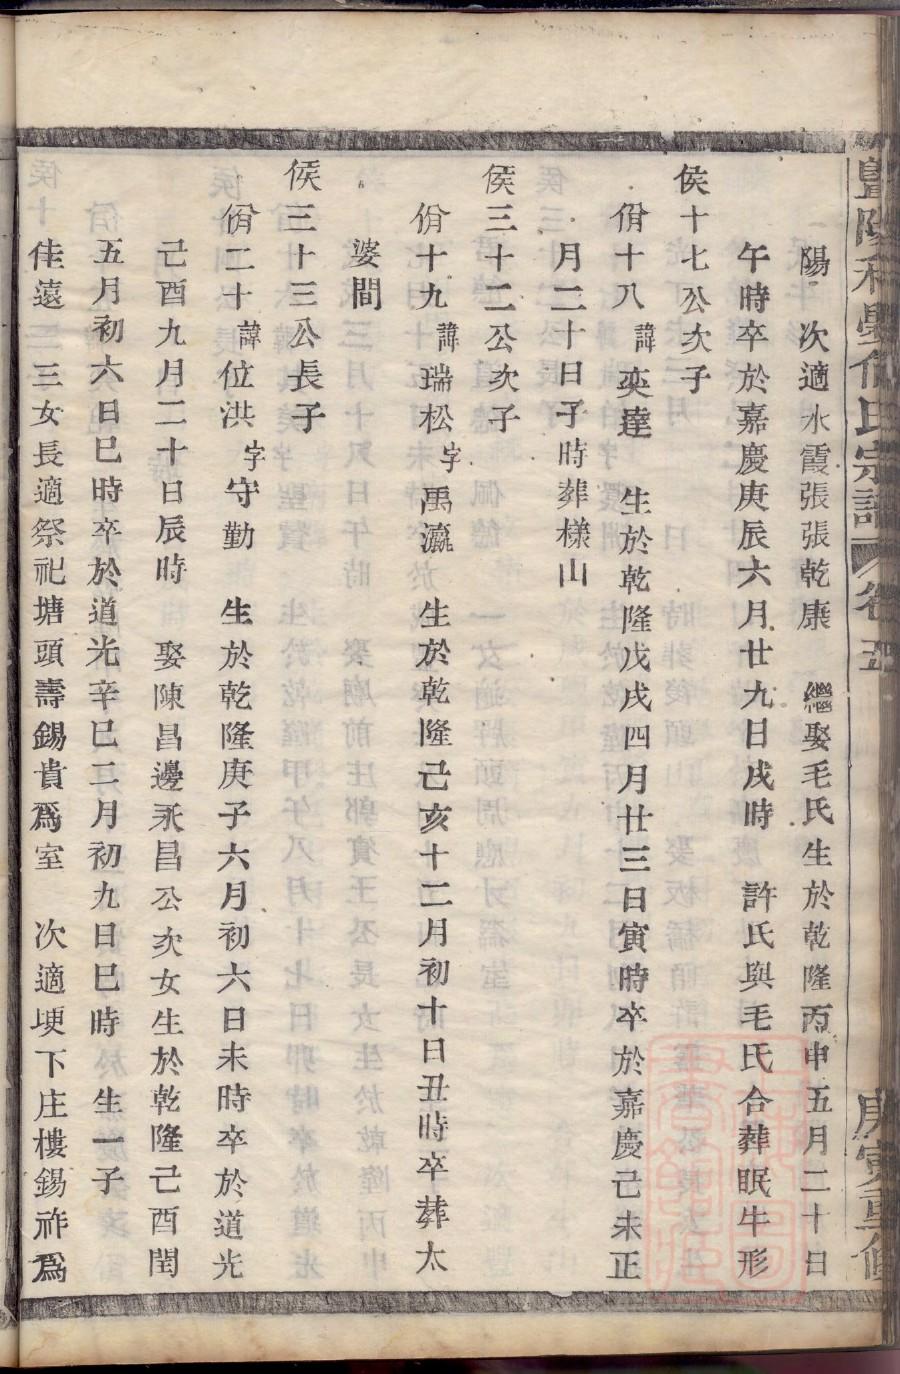 陽　次適水霞張張乾康　繼娶毛氏生於乾隆丙申五月二十日
午時卒於嘉慶庚辰六月廿九日戌時　許氏與毛氏合葬眠牛形
侯十七公次子
佾十八諱奕達　生於乾隆戊戌四月廿三日寅時卒於嘉慶己未正
月二十日子時葬樣山
侯三十二公次子
佾十九諱瑞松字禹瀛　生於乾隆己亥十二月初十日丑時卒葬太
婆間
侯三十三公長子
佾二十諱位洪字守勤　生於乾隆庚子六月初六日未時卒於道光
己酉九月二十日辰時　娶陳昌邊永昌公次女生於乾隆己酉閏
五月初六日巳時卒於道光辛巳二月初九日巳時　生一子
佳遠　三女長適祭祀塘頭壽錫貴爲室　次適埂下庄樓錫祚爲
暨陽　氏宗譜　卷五　庚寅重修